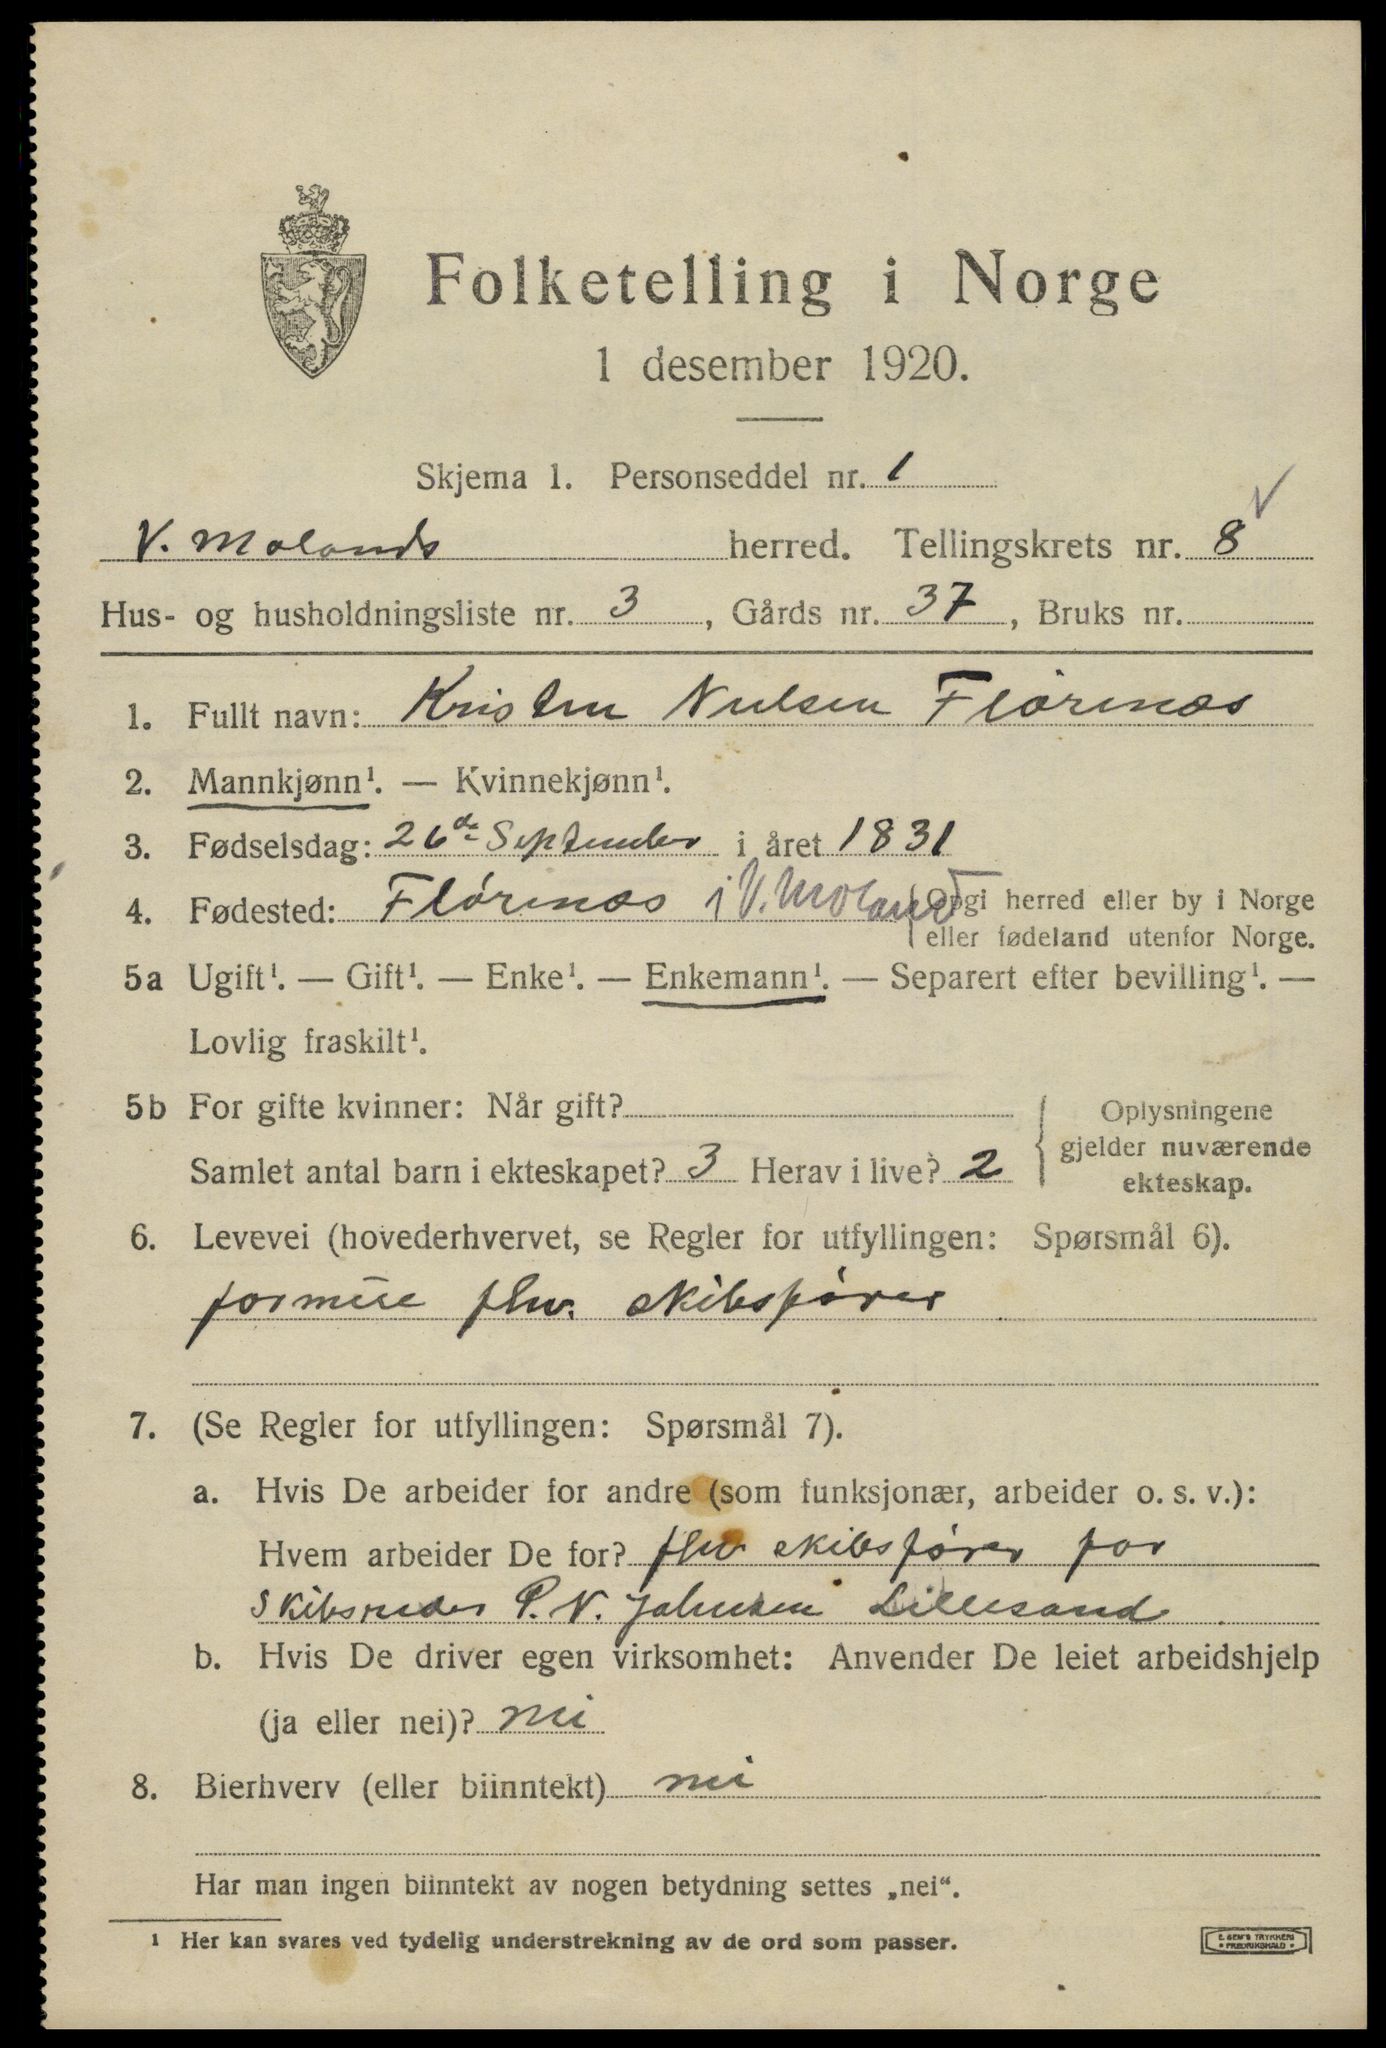 Folketelling i Norge
1 desember 1920.
Skjema 1. Personseddel nr. 1
V. Molands herred. Tellingskrets nr. 8
Hus- og husholdningsliste nr. 3, Gårds nr. 37, Bruks nr.
1. Fullt navn: Kristen Nielsen Flørenæs
2. Mannkjønn¹. — Kvinnekjønn¹.
3. Fødselsdag: 26de September i året 1831
4. Fødested: Flørenæs i V. Moland { Opgi herred eller by i Norge
eller fødeland utenfor Norge.
5a Ugift¹. — Gift¹. — Enke¹. — Enkemann¹. — Separert efter bevilling¹. —
Lovlig fraskilt¹.
5b For gifte kvinner: Når gift? { Oplysningene
gjelder nuværende
Samlet antal barn i ekteskapet? 3 Herav i live? 2 ekteskap.
6. Levevei (hovederhvervet, se Regler for utfyllingen: Spørsmål 6).
formue fhv. skibsfører
7. (Se Regler for utfyllingen: Spørsmål 7).
a. Hvis De arbeider for andre (som funksjonær, arbeider o. s. v.):
Hvem arbeider De for? fhv skibsfører for
Skibsreder P. N. Johnsen Lillesand
b. Hvis De driver egen virksomhet: Anvender De leiet arbeidshjelp
(ja eller nei)? nei
8. Bierhverv (eller biinntekt) nei
Har man ingen biinntekt av nogen betydning settes „nei“.
1 Her kan svares ved tydelig understrekning av de ord som passer.
E. SEM'S TRYKKERI
• FREDRIKSHALD •